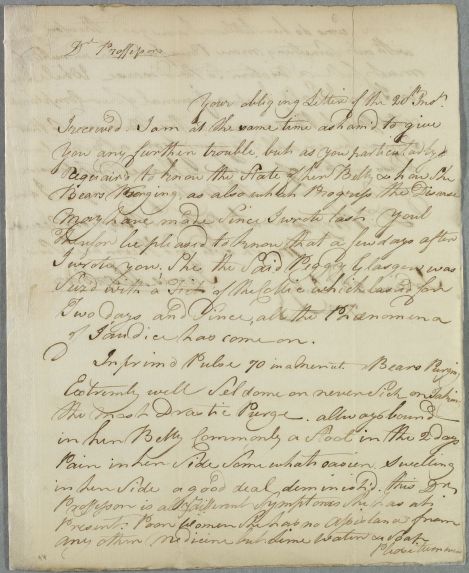 Dr. Proffesor
your obliging Letter of the 20t. Inst.
I received I am at the same time ashamd to give
you any further trouble, but as you particularly
Requaird to know the State of her Belly & how She
Bears Purging, as also which Progress the Disease
may have made Since I wrote last. Youl
therfor be pleased to know that a few days after
I wrote you. She the Said Peggy Glasgow was
Sized with a Fit of the Collic which lasted for
Two days and Since, all the Phænomena
of Jaundice has come on.
Inprimd Pulse 70 in a Menut. Bears Purgin
Extremly well Seldome or never Sick on taking
the most Drastic Purge. allways bound
in her Belly Commonly a Stool in the 2 days
Pain in her Side Somewhat easier. Swelling
in her Side a good deal deminishd. this Dr.
Proffesor is all different Symptoms She has at
Present. Poor Women She has no Assistance from
any other medicine but Lime water & Soap